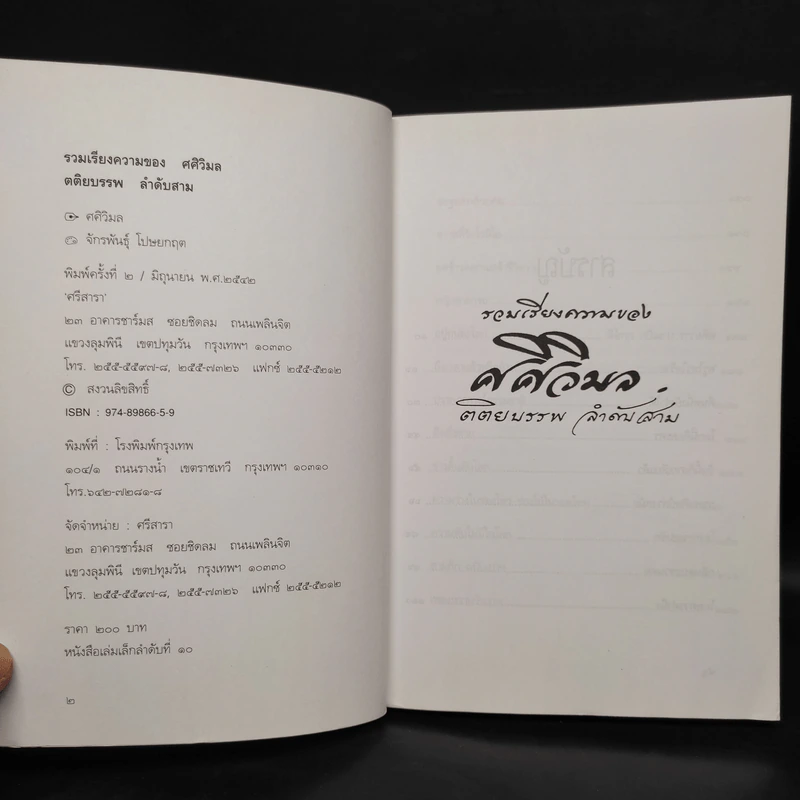 รวมเรียงความของ ศศิวิมล
ตติยบรรพ ลำดับสาม
ศศิวิมล
จักรพันธุ์ โปษยกฤต
พิมพ์ครั้งที่ ๒ / มิถุนายน พ.ศ.๒๕๔๒
'ศรีสารา'
๒๓ อาคารชาร์มส ซอยชิดลม ถนนเพลินจิต
แขวงลุมพินี เขตปทุมวัน กรุงเทพฯ ๑๐๓๓๐
โทร. ๒๕๕-๕๕๙๗-๘, ๒๕๕-๗๓๒๖ แฟกซ์ ๒๕๕-๕๒๑๒
© สงวนลิขสิทธิ์
ISBN : 974-89866-5-9
พิมพ์ที่ : โรงพิมพ์กรุงเทพ
๑๐๔/๑ ถนนรางน้ำ เขตราชเทวี กรุงเทพฯ ๑๐๓๑๐
โทร.๖๔๒-๗๒๘๑-๘
จัดจำหน่าย : ศรีสารา
๒๓ อาคารชาร์มส ซอยชิดลม ถนนเพลินจิต
แขวงลุมพินี เขตปทุมวัน กรุงเทพฯ ๑๐๓๓๐
โทร. ๒๕๕-๕๕๙๗-๘, ๒๕๕-๗๓๒๖ แฟกซ์ ๒๕๕-๕๒๑๒
ราคา ๒๐๐ บาท
หนังสือเล่มเล็กลำดับที่ ๑๐
๒
รวมเรียงความของ
ศศิวิมล
ตติยบรรพ ลำดับสาม